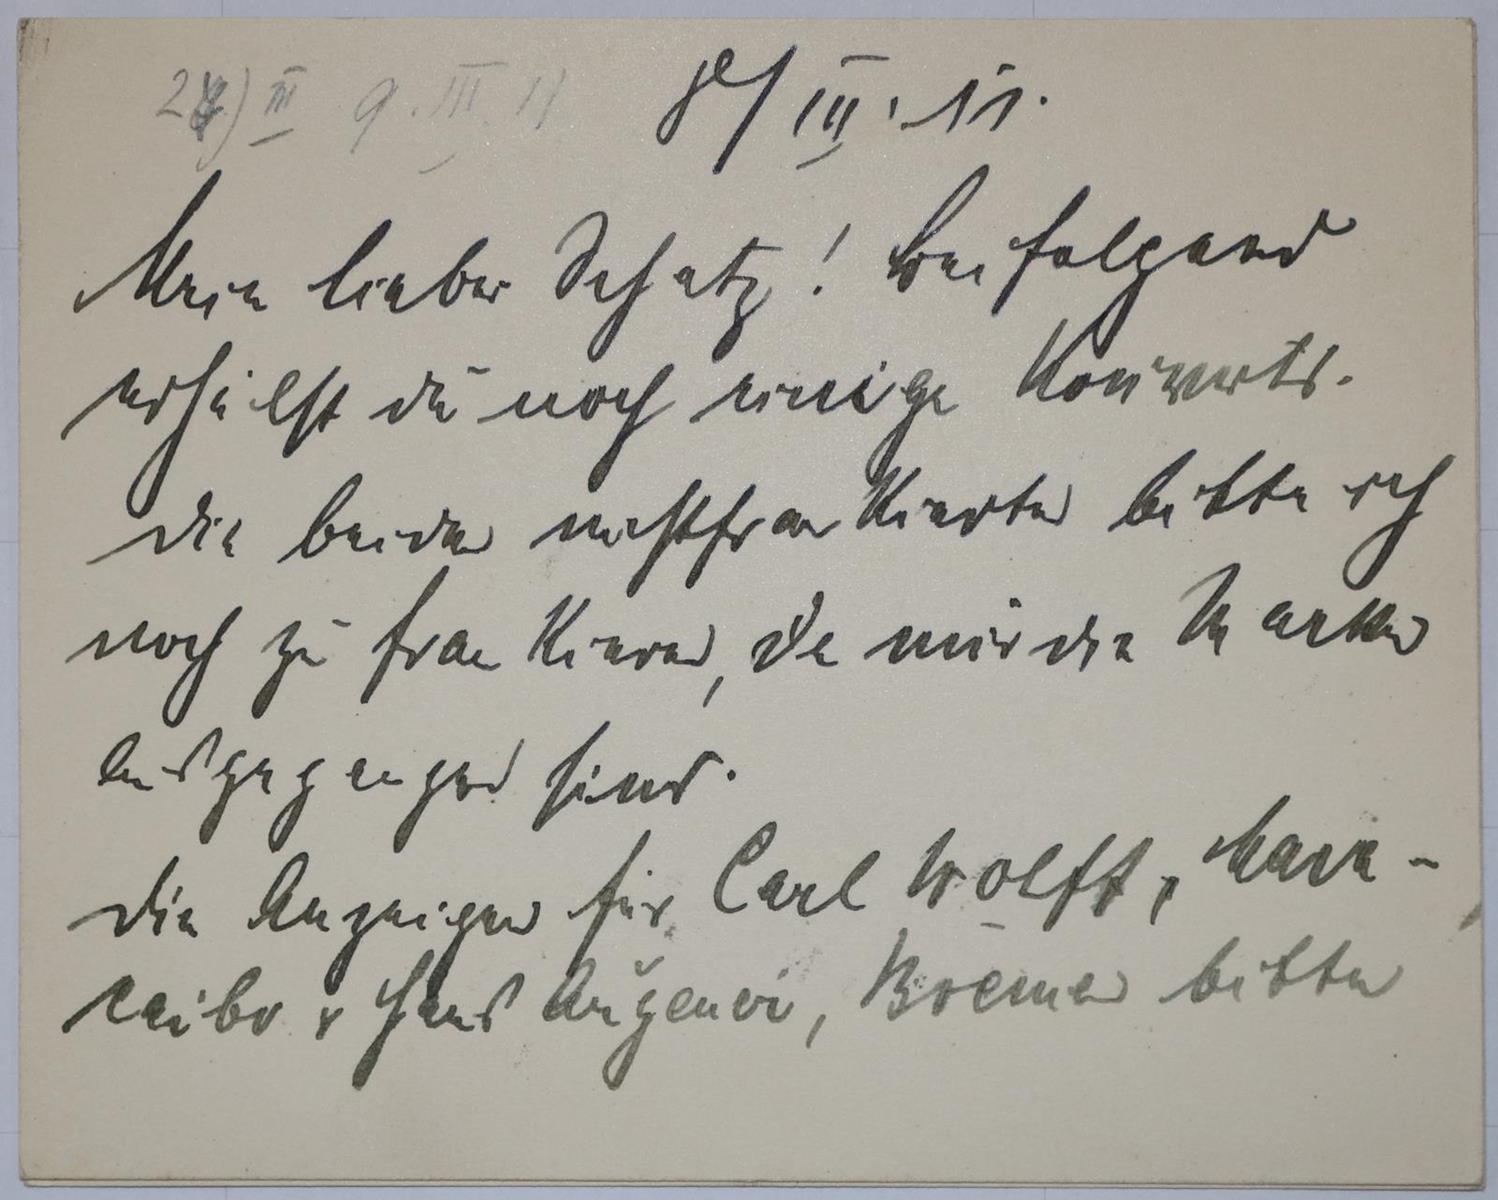 28) III 9. III. 11 8/III. 11.
Mein lieber Schatz! Beifolgend
erhälst du noch einige Kouverts.
die beiden nichtfrankierten bitte ich
noch zu frankieren, da mir die Marken
ausgegangen sind.
die Anzeigen für Carl Wolff, Mara-
caibo & Hans Augener, Bremen bitte